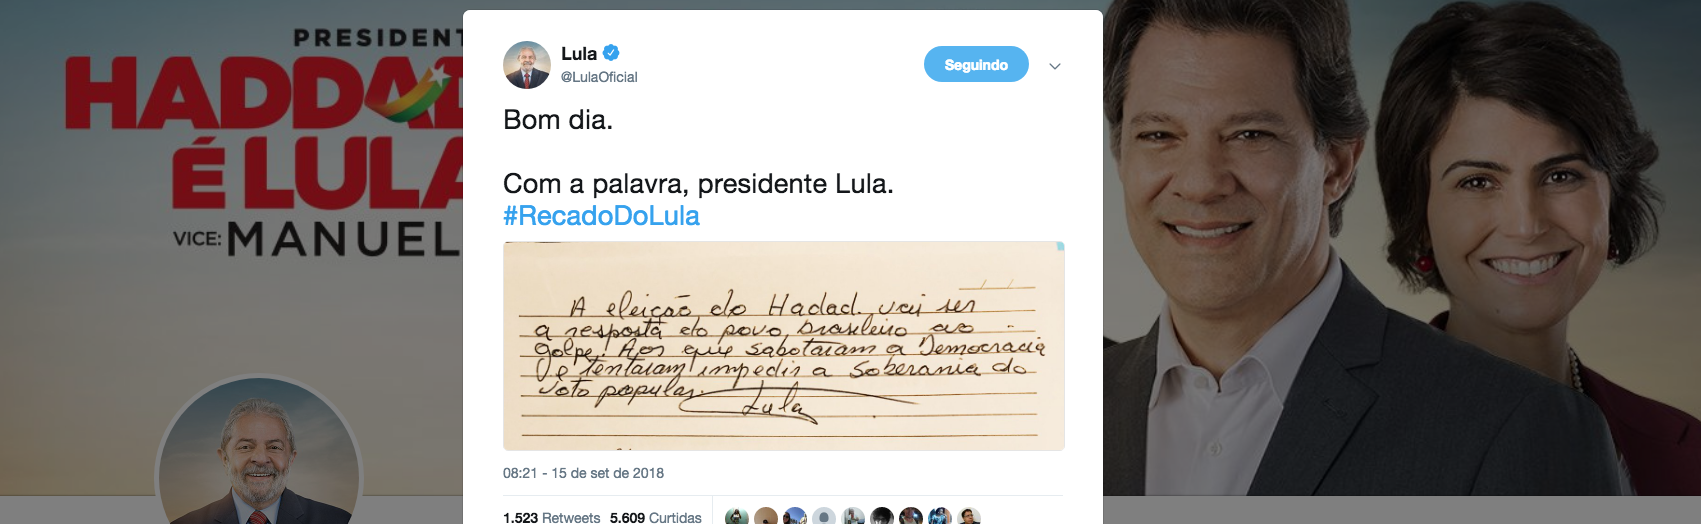 PRESIDENT
HADDAD
É LULA
VICE: MANUEL
Lula
@LulaOficial
Seguindo
Bom dia.
Com a palavra, presidente Lula.
#RecadoDoLula
A eleição do Hadad vai ser
a resposta do povo brasileiro ao
golpe. Aos que sabotaram a Democracia
e tentaram impedir a soberania do
voto popular.
Lula
08:21 - 15 de set de 2018
1.523 Retweets 5.609 Curtidas